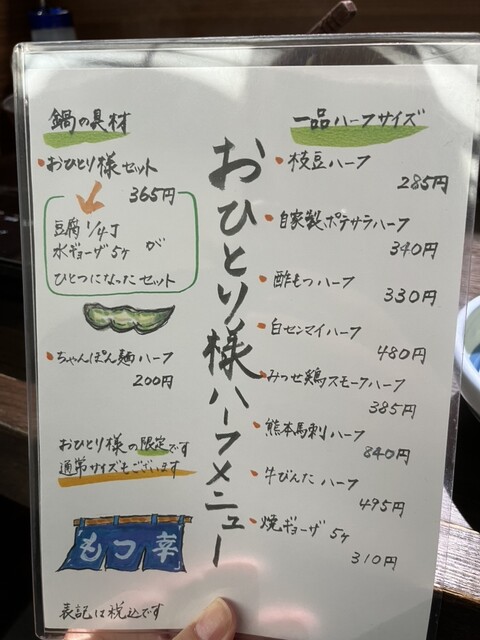 おひとり様ハーフメニュー
鍋の具材
・おひとり様セット
365円
豆腐1/4丁
水ギョーザ5ヶ が
ひとつになったセット
・ちゃんぽん麺ハーフ
200円
おひとり様の限定です
通常サイズもございます
もつ幸
表記は税込です
一品ハーフサイズ
・枝豆ハーフ
285円
・自家製ポテサラハーフ
340円
・酢もつハーフ
330円
・白センマイハーフ
480円
・みつせ鶏スモークハーフ
385円
・熊本馬刺ハーフ
840円
・牛びんたハーフ
495円
・焼ギョーザ 5ヶ
310円